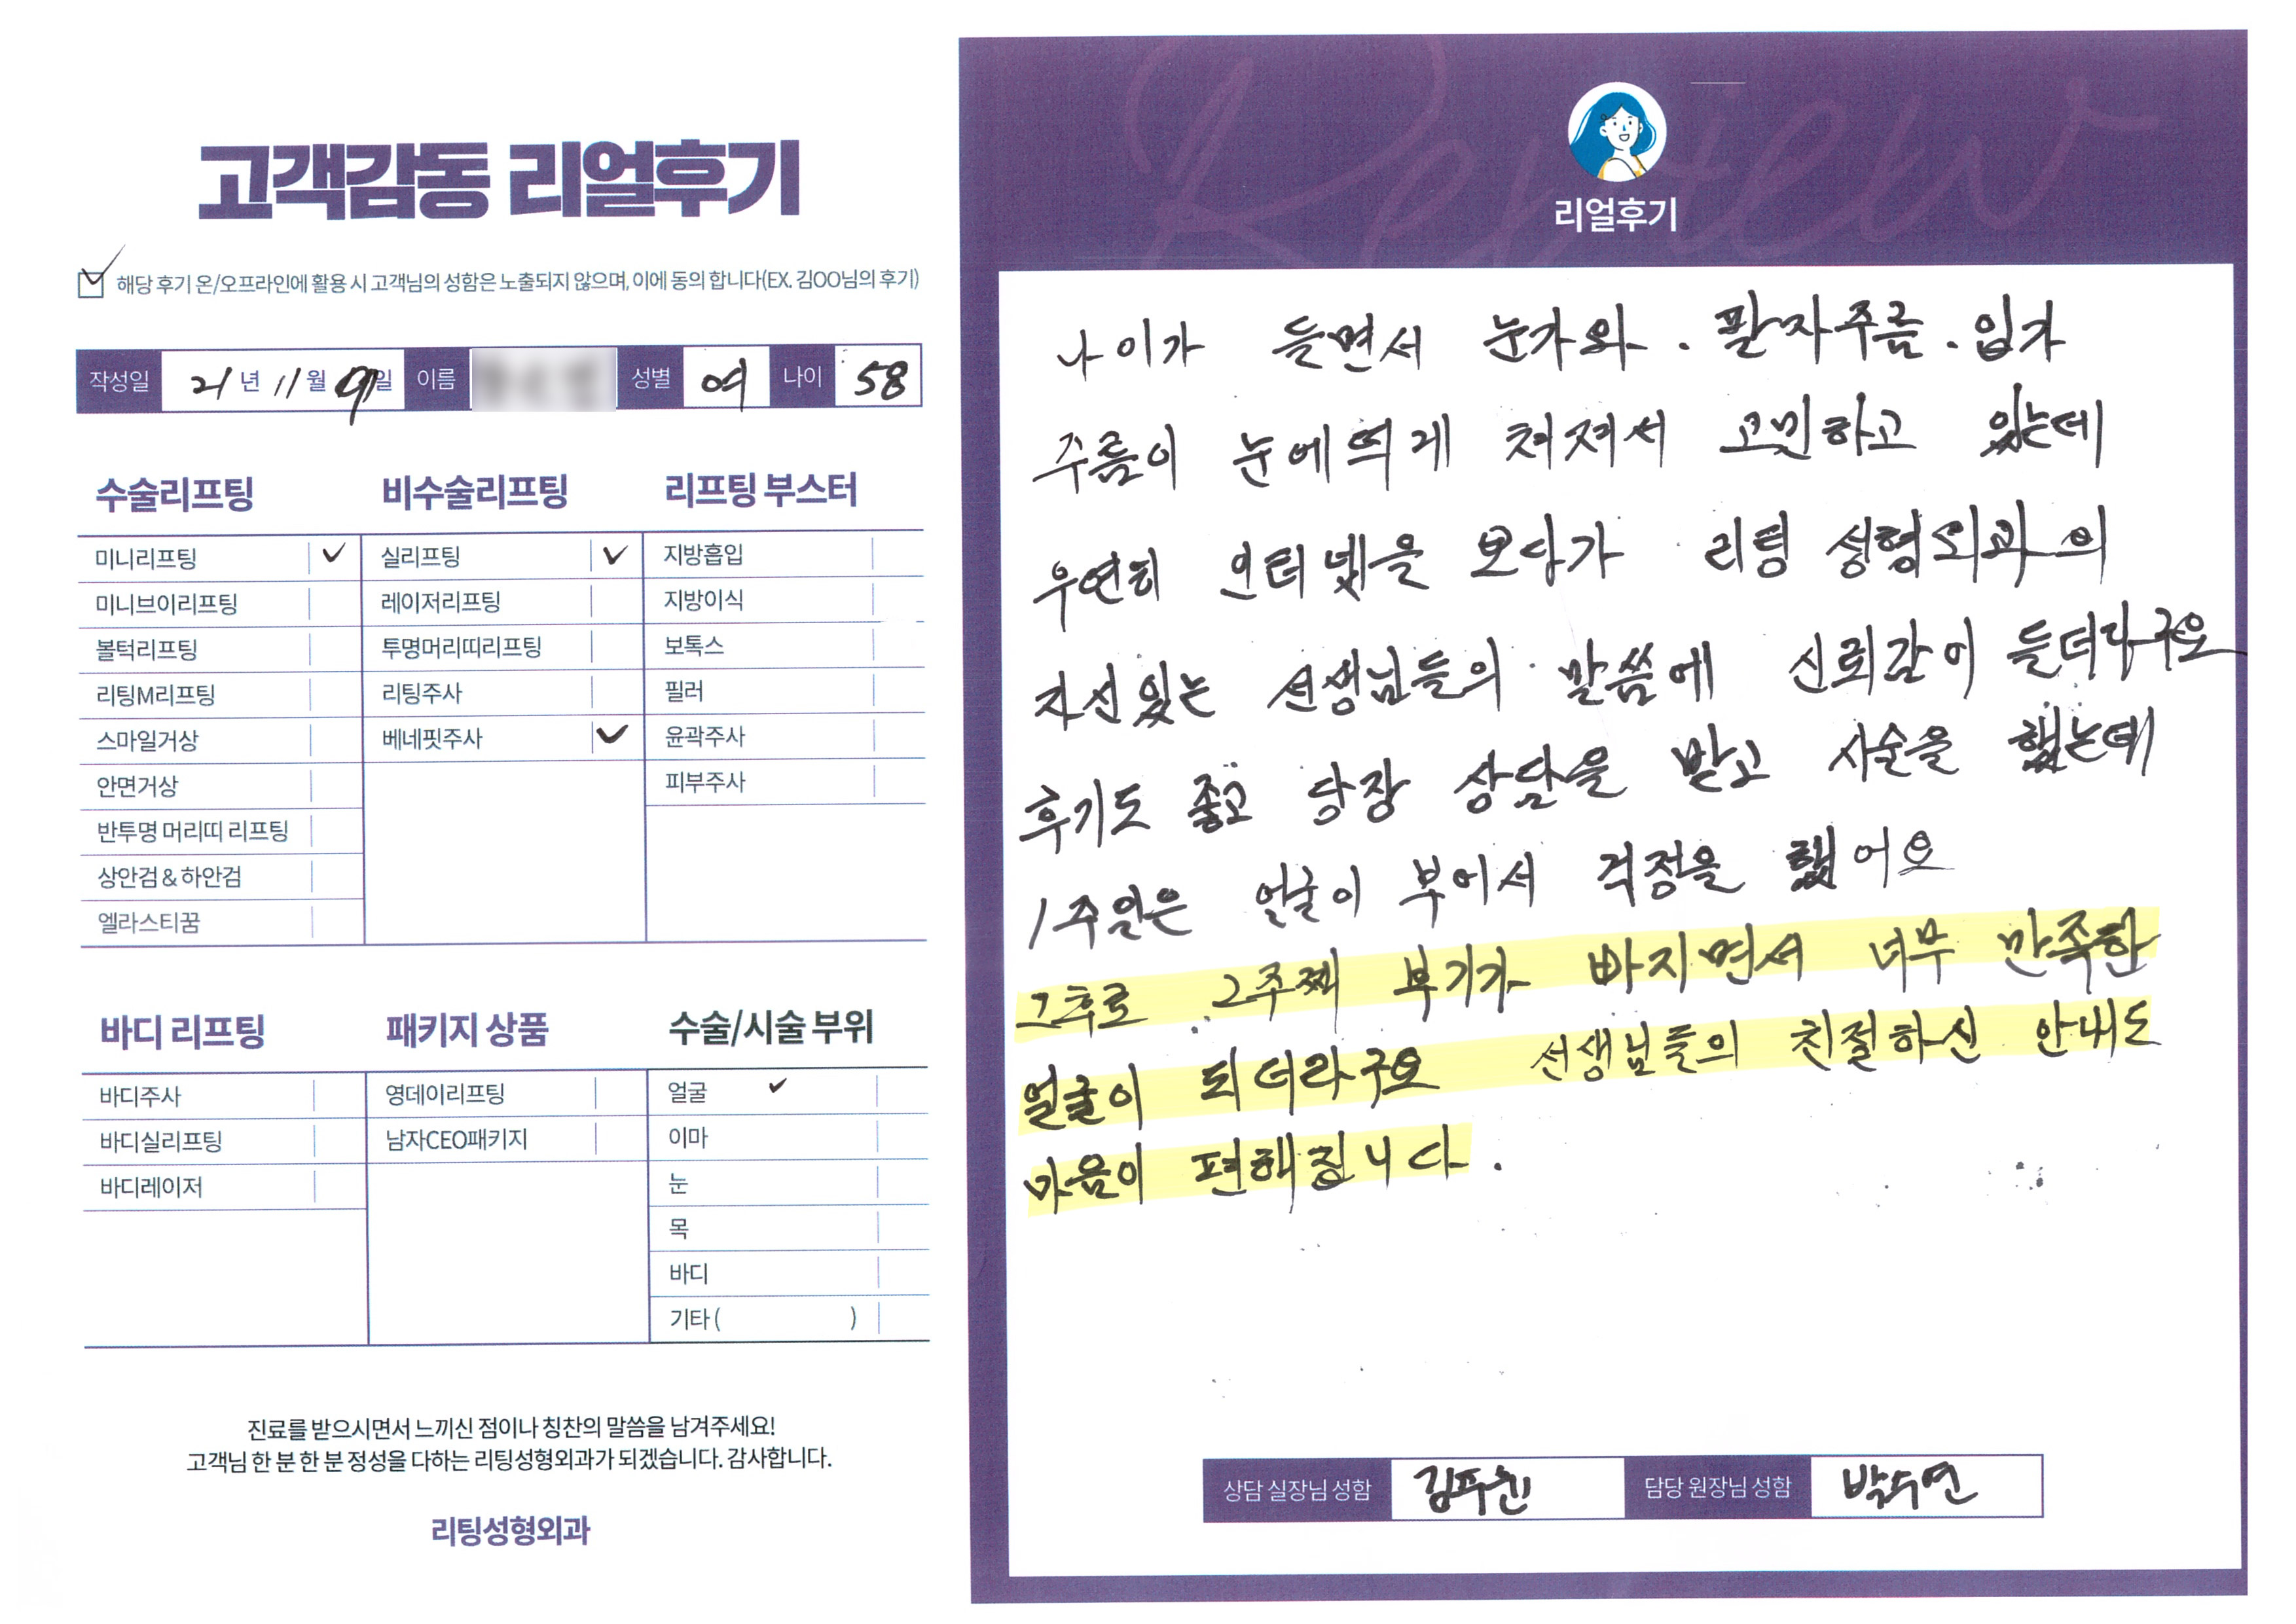 고객감동 리얼후기
해당 후기 온/오프라인에 활용 시 고객님의 성함은 노출되지 않으며, 이에 동의 합니다(EX. 김OO님의 후기)
작성일 21년 11월 9일 이름 성별 여 나이 58
수술리프팅
미니리프팅
미니브이리프팅
볼턱리프팅
리팅M리프팅
스마일거상
안면거상
반투명 머리띠 리프팅
상안검 & 하안검
엘라스티꿈
비수술리프팅
실리프팅
레이저리프팅
투명머리띠리프팅
리팅주사
베네핏주사
리프팅 부스터
지방흡입
지방이식
보톡스
필러
윤곽주사
피부주사
바디 리프팅
바디주사
바디실리프팅
바디레이저
패키지 상품
영데이리프팅
남자CEO패키지
수술/시술 부위
얼굴
이마
눈
목
바디
기타 ( )
진료를 받으시면서 느끼신 점이나 칭찬의 말씀을 남겨주세요!
고객님 한 분 한 분 정성을 다하는 리팅성형외과가 되겠습니다. 감사합니다.
리팅성형외과
Review
리얼후기
나이가 들면서 눈가와 . 팔자주름 . 입가
주름이 눈에띄게 쳐져서 고민하고 있는데
우연히 인터넷을 보다가 리팅 성형외과의
자신있는 선생님들의 말씀에 신뢰감이 들더라구요
후기도 좋고 당장 상담을 받고 시술을 했는데
1주일은 얼굴이 부어서 걱정을 했어요
그후로 2주째 부기가 빠지면서 너무 만족한
얼굴이 되더라구요 선생님들의 친절하신 안내도
마음이 편해집니다.
상담 실장님 성함 담당 원장님 성함 박수연